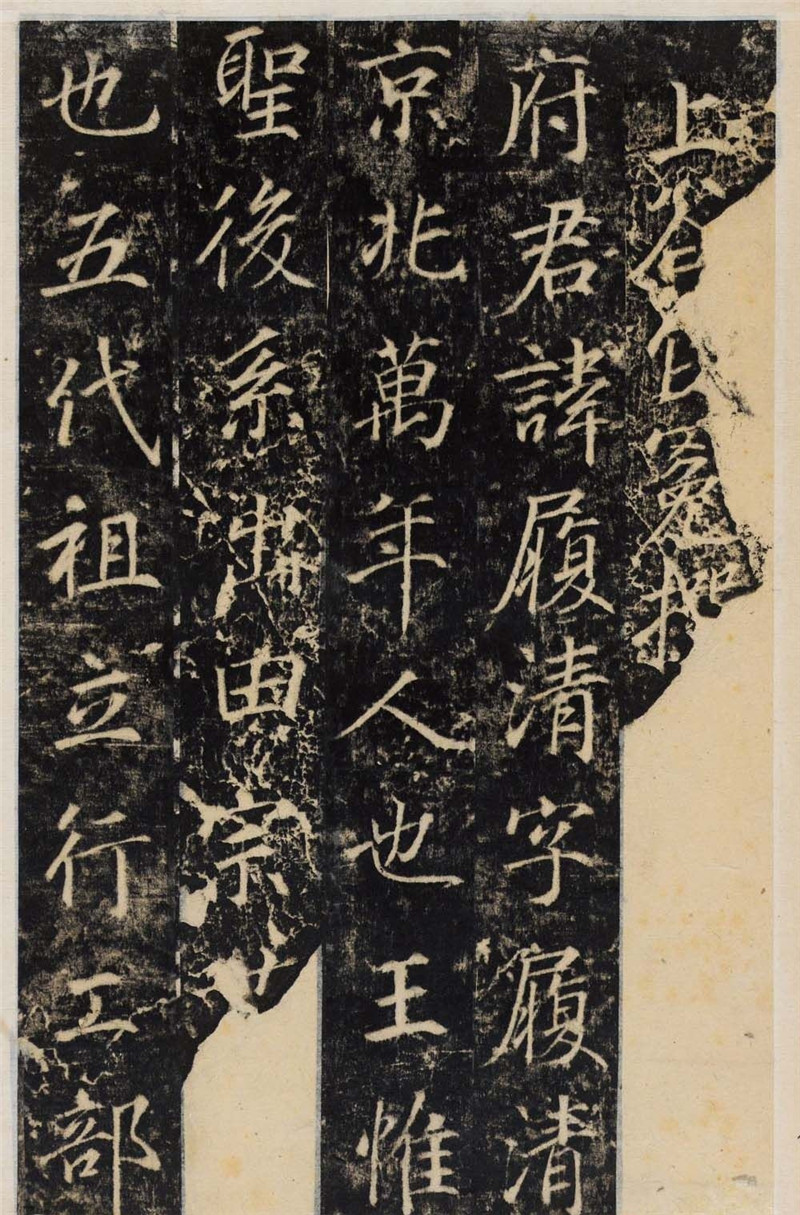 上谷寇
府君諱履清字履清
京兆萬年人也王惟
聖後系出由宗
也五代祖立行工部